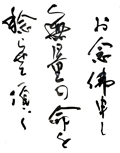 お念佛申し
無量の命を
稔らせて頂く